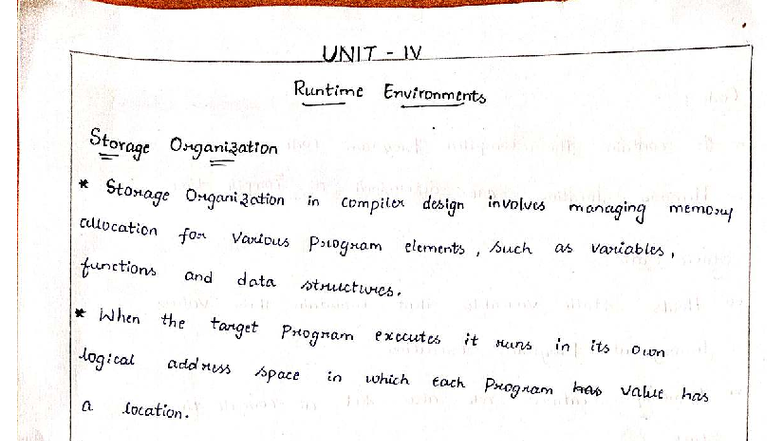 UNIT - IV
Runtime Environments
Storage Organization
* Storage Organization in compiler design involves managing memory
allocation for various program elements, such as variables,
functions and data structures.
* When the target program executes it runs in its own
logical address space in which each program has value has
a location.